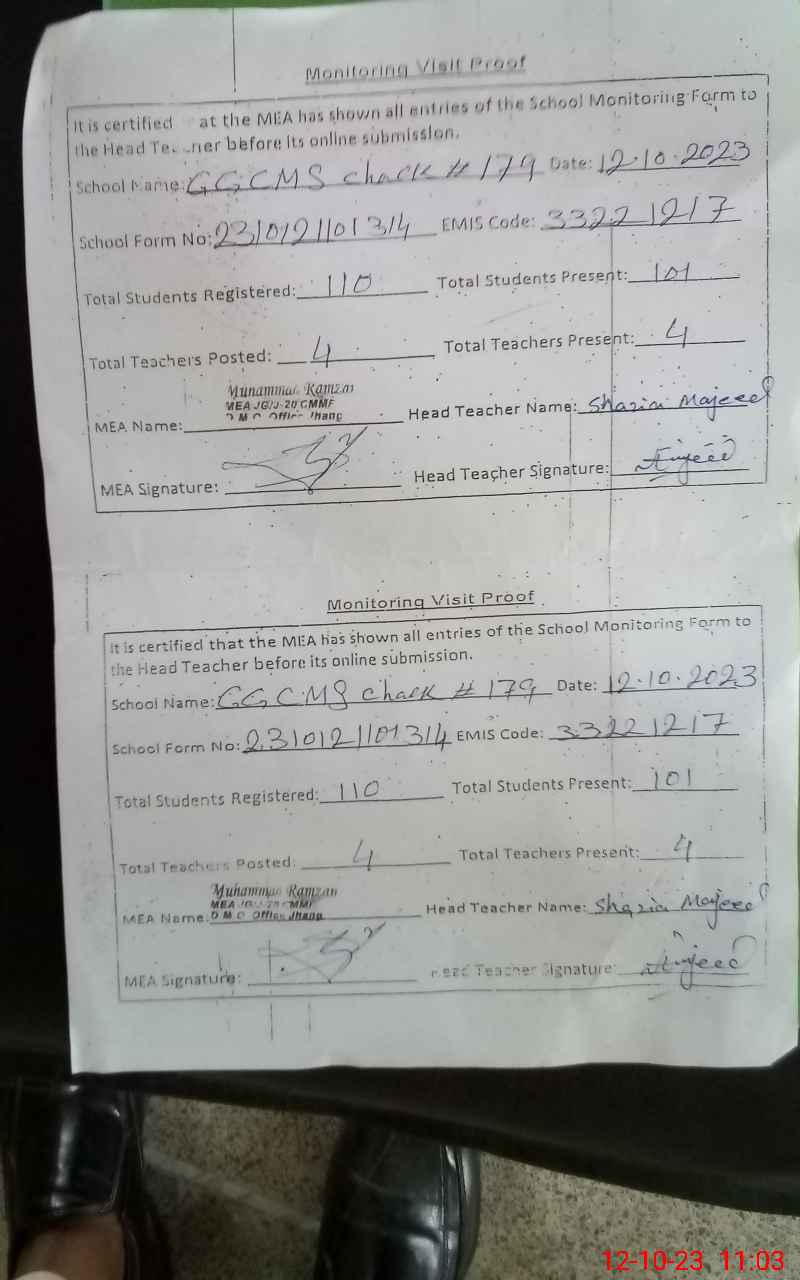 Monitoring Visit Proof
It is certified at the MEA has shown all entries of the School Monitoring Form to
the Head Te ner before its online submission.
School Name: GGCMS chack # 179 Date: 12.10.2023
School Form No: 2310121101314 EMIS Code: 33221217
Total Students Registered: 110 Total Students Present: 101
Total Teachers Posted: 4 Total Teachers Present: 4
Muhammad Ramzan
MEA JG/J-20 CMMF
D M O Office Jhang
MEA Name: Head Teacher Name: Shazia Majeed
MEA Signature: Head Teacher Signature:
Monitoring Visit Proof
It is certified that the MEA has shown all entries of the School Monitoring Form to
the Head Teacher before its online submission.
School Name: GGCMS chack # 179 Date: 12.10.2023
School Form No: 2310121101314 EMIS Code: 33221217
Total Students Registered: 110 Total Students Present: 101
Total Teachers Posted: 4 Total Teachers Present: 4
Muhammad Ramzan
MEA JG/J-20 CMMF
D M O Office Jhang
MEA Name: Head Teacher Name: Shazia Majeed
MEA Signature: Head Teacher Signature:
12-10-23 11:03